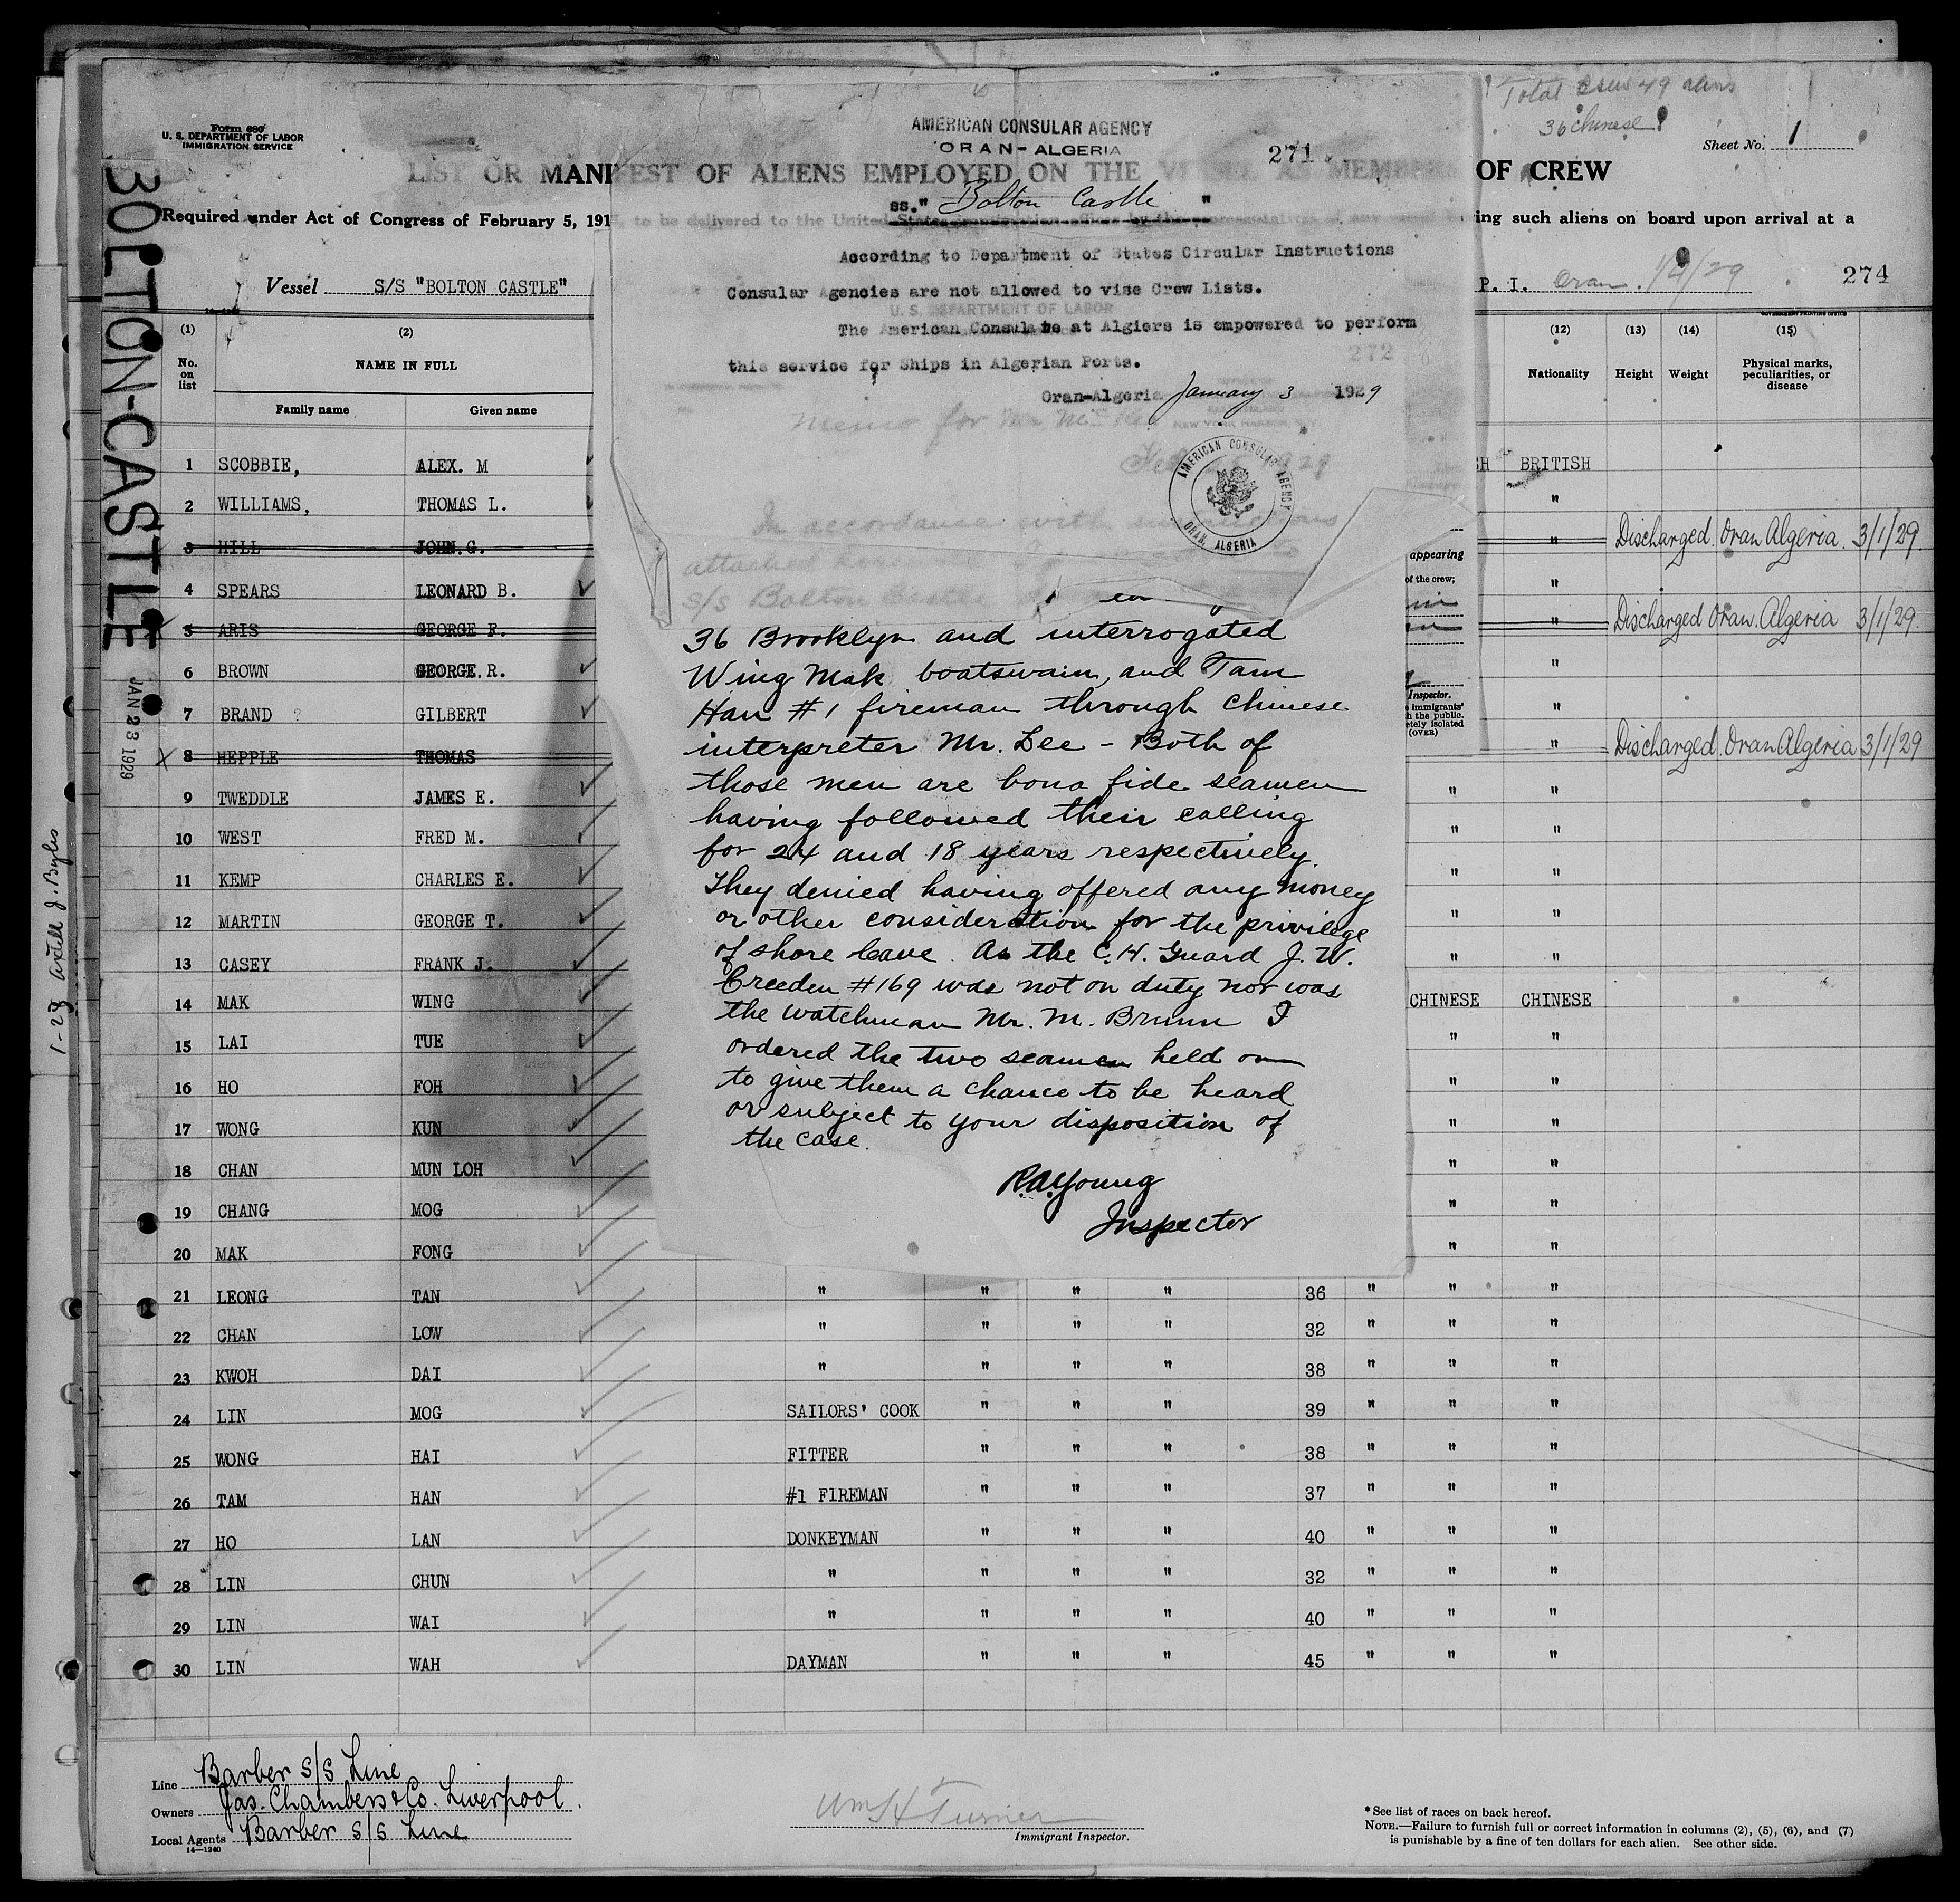 Total Crew 49 aliens
36 Chinese
Form 680
U. S. DEPARTMENT OF LABOR
IMMIGRATION SERVICE
Sheet No. 1
AMERICAN CONSULAR AGENCY
ORAN-ALGERIA
271
LIST OR MANIFEST OF ALIENS EMPLOYED ON THE VESSEL AS MEMBERS OF CREW
ss." Bolton Castle "
Required under Act of Congress of February 5, 191
to be delivered to the United States
ing such aliens on board upon arrival at a
According to Department of States Circular Instructions
Consular Agencies are not allowed to vise Crew Lists.
U. S. DEPARTMENT OF LABOR
The American Consulate at Algiers is empowered to perform
this service for Ships in Algerian Ports.
272
Oran-Algeria January 3 1929
AMERICAN CONSULAR AGENCY
ORAN. ALGERIA
Memo for Mr
1929
In accordance with instructions
attached
s/s Bolton Castle
36 Brooklyn and interrogated
Wing Mak boatswain, and Tam
Han #1 fireman through Chinese
interpreter Mr. Lee - Both of
those men are bona fide seamen
having followed their calling
for 24 and 18 years respectively.
They denied having offered any money
or other consideration for the privilege
of shore leave. As the C.H. Guard J. W.
Creeden #169 was not on duty nor was
the watchman Mr. M. Brunn I
ordered the two seamen held on
to give them a chance to be heard
or subject to your disposition of
the case.
R.A. Young
Inspector
Vessel S/S "BOLTON CASTLE"
P. I. Oran. 1/4/29
274
BOLTON-CASTLE
JAN 23 1929
(1) (2) (12) (13) (14) (15)
No. on list
NAME IN FULL
Family name Given name
Nationality Height Weight Physical marks, peculiarities, or disease
1 SCOBBIE, ALEX. M SH BRITISH
2 WILLIAMS, THOMAS L. "
3 HILL JOHN.G. " Discharged. Oran Algeria. 3/1/29.
4 SPEARS LEONARD B. "
5 ARIS GEORGE F. " Discharged Oran. Algeria 3/1/29.
6 BROWN GEORGE.R. "
7 BRAND ? GILBERT "
8 HEPPLE THOMAS " Discharged. Oran Algeria 3/1/29
9 TWEDDLE JAMES E. " "
10 WEST FRED M. " "
11 KEMP CHARLES E. " "
12 MARTIN GEORGE T. " "
13 CASEY FRANK J. " "
14 MAK WING CHINESE CHINESE
15 LAI TUE " "
16 HO FOH " "
17 WONG KUN " "
18 CHAN MUN LOH " "
19 CHANG MOG " "
20 MAK FONG " "
21 LEONG TAN " " " " 36 " " "
22 CHAN LOW " " " " 32 " " "
23 KWOH DAI " " " " 38 " " "
24 LIN MOG SAILORS' COOK " " " 39 " " "
25 WONG HAI FITTER " " " 38 " " "
26 TAM HAN #1 FIREMAN " " " 37 " " "
27 HO LAN DONKEYMAN " " " 40 " " "
28 LIN CHUN " " " " 32 " " "
29 LIN WAI " " " " 40 " " "
30 LIN WAH DAYMAN " " " 45 " " "
appearing
of the crew;
Inspector.
immigrants'
h the public.
etely isolated
(OVER)
Line Barber S/S Line
Owners Jas. Chambers & Co. Liverpool.
Local Agents Barber S/S Line
14—1240
Wm H Turner
Immigrant Inspector.
* See list of races on back hereof.
NOTE.—Failure to furnish full or correct information in columns (2), (5), (6), and (7)
is punishable by a fine of ten dollars for each alien. See other side.